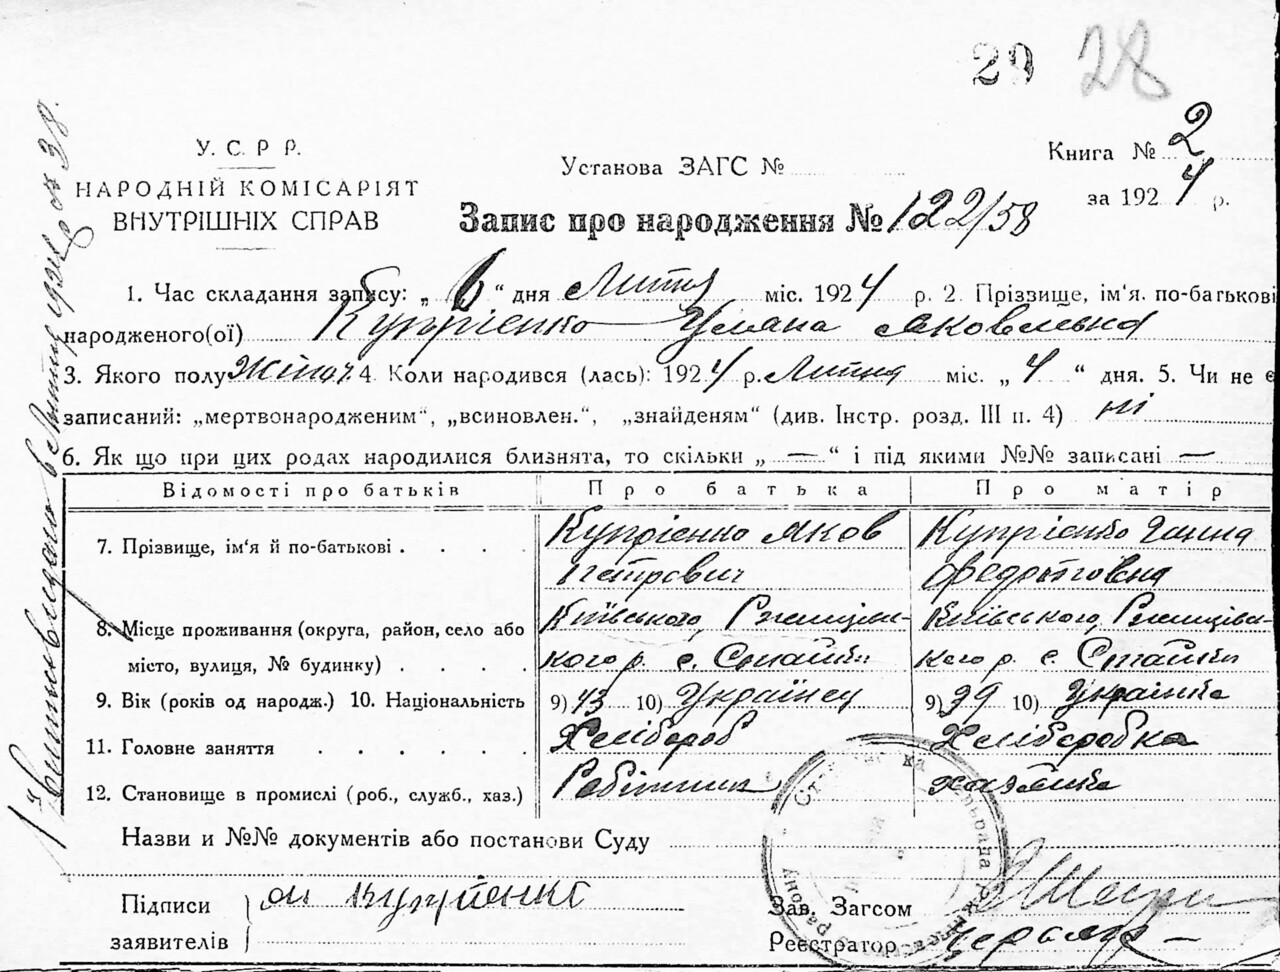 29 28
У. С. Р Р.
НАРОДНІЙ КОМІСАРІЯТ
ВНУТРІШНІХ СПРАВ
Установа ЗАГС №
Книга № 2
за 1924 р.
Запис про народження № 122/58
1. Час складання запису: „ 6 “ дня Лютня міс. 1924 р. 2. Прізвище, ім'я. по-батькові
народженого(ої) Купрієнко Уляна Яковлевна
3. Якого полу Жіноч. 4. Коли народився (лась): 1924 р. Лютня міс. „ 4 “ дня. 5. Чи не є
записаний: „мертвонародженим“, „всиновлен.“, „знайденям“ (див. Інстр. розд. III п. 4) ні
6. Як що при цих родах народилися близнята, то скільки „ — “ і під якими №№ записані —
Відомості про батьків Про батька Про матір
7. Прізвище, ім'я й по-батькові . . . . Купрієнко Яков Купрієнко Ганна
Петрович Федотовна
8. Місце проживання (округа, район, село або Київського, Ржищівс- Київського, Ржищівс-
місто, вулиця, № будинку) . . . . кого р. с. Стайки кого р. с. Стайки
9. Вік (років од народж.) 10. Національність 9) 43 10) Українец 9) 39 10) Українка
11. Головне заняття . . . . . . Хлібороб Хліборобка
12. Становище в промислі (роб., служб., хаз.) Робітник хазяйка
Назви и №№ документів або постанови Суду
Підписи
заявителів
Купрієнко
Зав. Загсом
Реєстратор